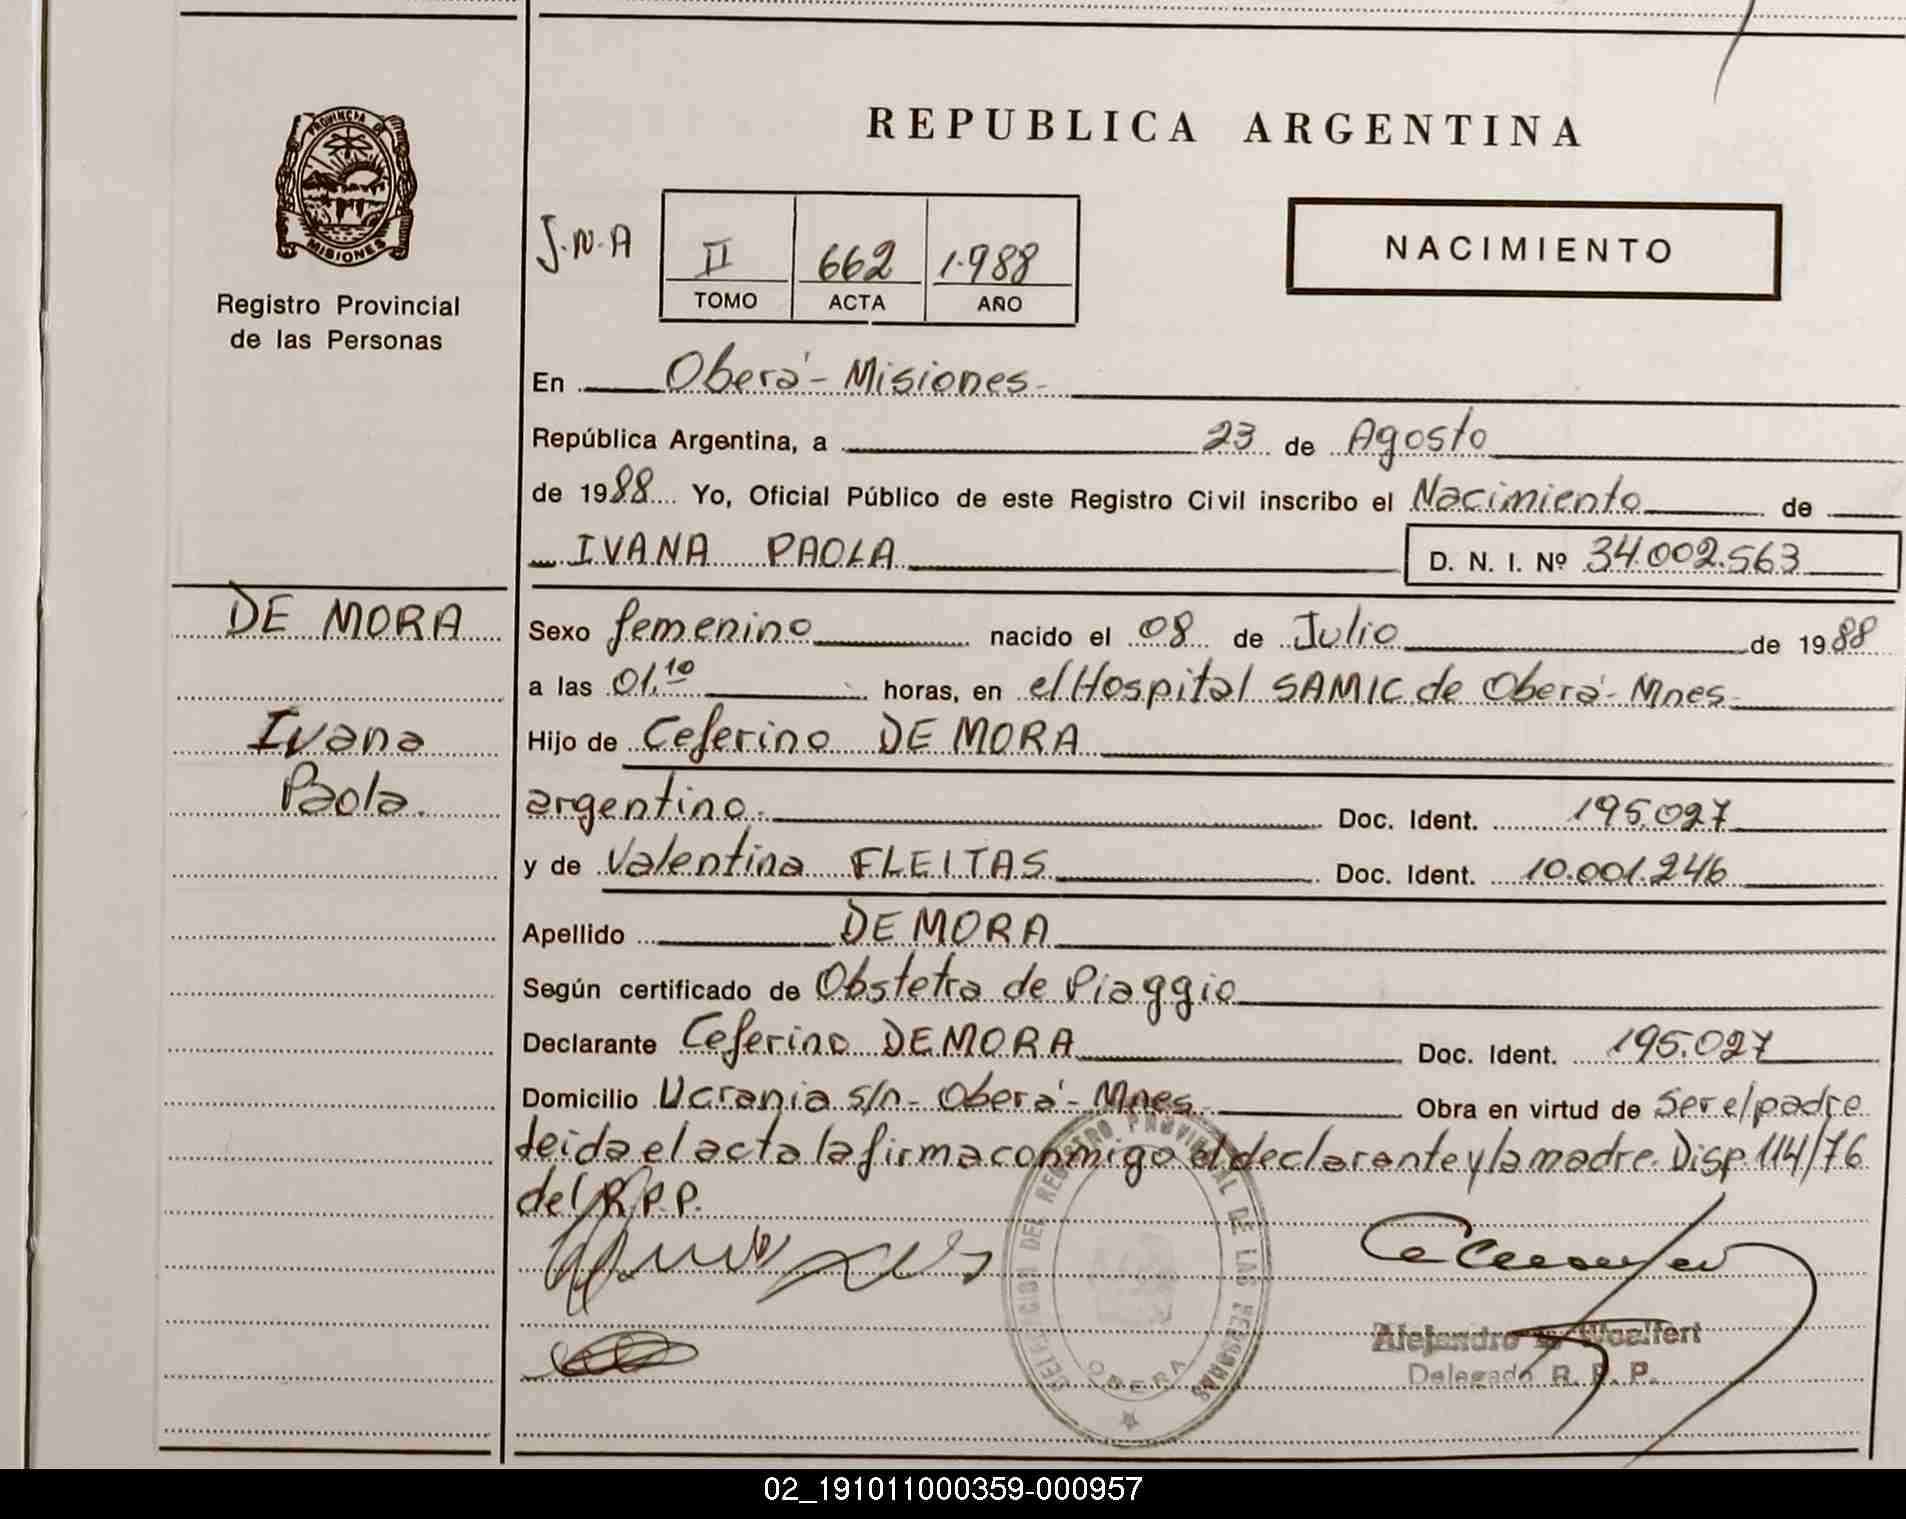 REPUBLICA ARGENTINA
PROVINCIA DE
MISIONES
Registro Provincial
de las Personas
J.N.A
II 662 1.988
TOMO ACTA AÑO
NACIMIENTO
En Oberá - Misiones
República Argentina, a 23 de Agosto
de 1988 Yo, Oficial Público de este Registro Civil inscribo el Nacimiento de
IVANA PAOLA D. N. I. Nº 34.002.563
DE MORA
Ivana
Paola.
Sexo femenino nacido el 08 de Julio de 1988
a las 01,10 horas, en el Hospital SAMIC de Oberá - Mnes
Hijo de Ceferino DE MORA
argentino. Doc. Ident. 195.027
y de Valentina FLEITAS Doc. Ident. 10.001.246
Apellido DE MORA
Según certificado de Obstetra de Piaggio
Declarante Ceferino DE MORA Doc. Ident. 195.027
Domicilio Ucrania s/n - Oberá - Mnes Obra en virtud de Ser el padre
leida el acta la firma conmigo el declarante y la madre. Disp. 114/76
del R.P.P.
DELEGACION DEL REGISTRO PROVINCIAL DE LAS PERSONAS
OBERA
Alejandro Woelfert
Delegado R. P. P.
02_191011000359-000957